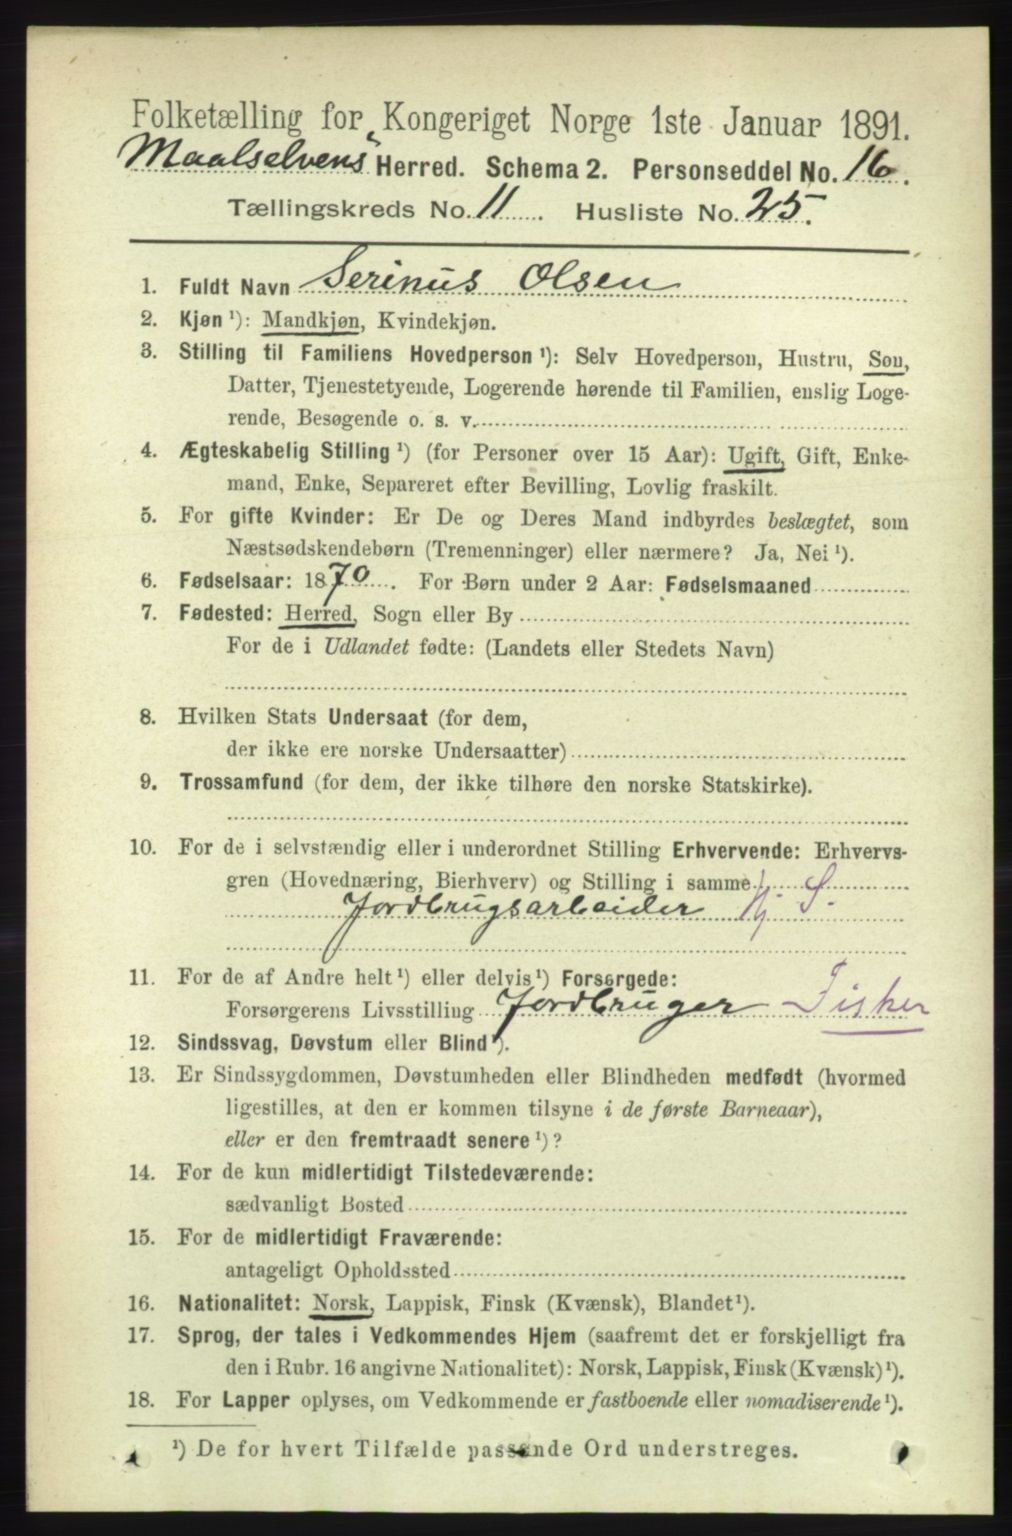 Folketælling for Kongeriget Norge 1ste Januar 1891.
Maalselvens Herred. Schema 2. Personseddel No. 16.
Tællingskreds No. 11. Husliste No. 25.
1. Fuldt Navn Serinus Olsen
2. Kjøn ¹): Mandkjøn, Kvindekjøn.
3. Stilling til Familiens Hovedperson ¹): Selv Hovedperson, Hustru, Søn,
Datter, Tjenestetyende, Logerende hørende til Familien, enslig Loge-
rende, Besøgende o. s. v.
4. Ægteskabelig Stilling ¹) (for Personer over 15 Aar): Ugift, Gift, Enke-
mand, Enke, Separeret efter Bevilling, Lovlig fraskilt.
5. For gifte Kvinder: Er De og Deres Mand indbyrdes beslægtet, som
Næstsødskendebørn (Tremenninger) eller nærmere? Ja, Nei ¹).
6. Fødselsaar: 1870. For Børn under 2 Aar: Fødselsmaaned
7. Fødested: Herred, Sogn eller By
For de i Udlandet fødte: (Landets eller Stedets Navn)
8. Hvilken Stats Undersaat (for dem,
der ikke ere norske Undersaatter)
9. Trossamfund (for dem, der ikke tilhøre den norske Statskirke).
10. For de i selvstændig eller i underordnet Stilling Erhvervende: Erhvervs-
gren (Hovednæring, Bierhverv) og Stilling i samme
Jordbrugsarbeider Hj. S.
11. For de af Andre helt ¹) eller delvis ¹) Forsørgede:
Forsørgerens Livsstilling Jordbruger Fisker
12. Sindssvag, Døvstum eller Blind ¹).
13. Er Sindssygdommen, Døvstumheden eller Blindheden medfødt (hvormed
ligestilles, at den er kommen tilsyne i de første Barneaar),
eller er den fremtraadt senere ¹)?
14. For de kun midlertidigt Tilstedeværende:
sædvanligt Bosted
15. For de midlertidigt Fraværende:
antageligt Opholdssted
16. Nationalitet: Norsk, Lappisk, Finsk (Kvænsk), Blandet ¹).
17. Sprog, der tales i Vedkommendes Hjem (saafremt det er forskjelligt fra
den i Rubr. 16 angivne Nationalitet): Norsk, Lappisk, Finsk (Kvænsk) ¹).
18. For Lapper oplyses, om Vedkommende er fastboende eller nomadiserende ¹).
¹) De for hvert Tilfælde passende Ord understreges.